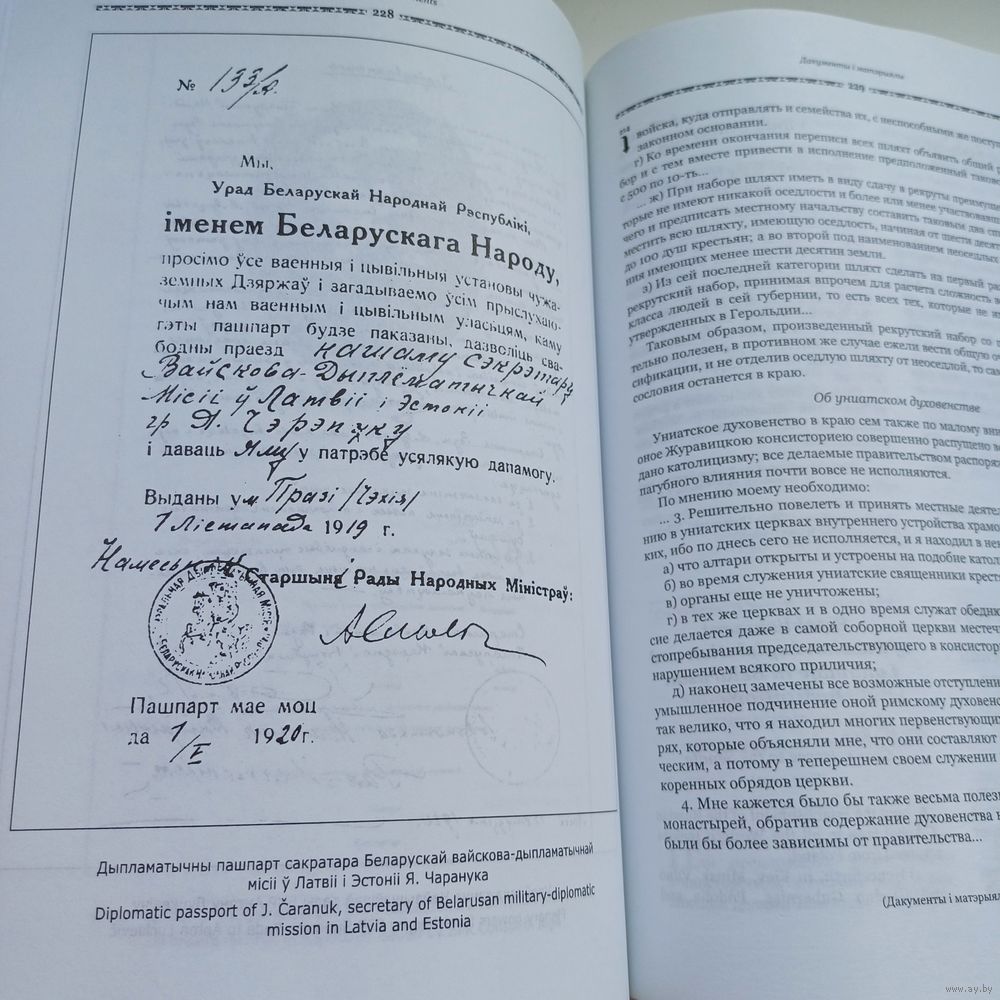 228
№ 133/д.
Мы,
Урад Беларускай Народнай Рэспублікі,
іменем Беларускага Народу,
просімо ўсе ваенныя і цывільныя установы чужа-
земных Дзяржаў і загадываемо ўсім прыслухаю-
чым нам ваенным і цывільным уласьцям, каму
гэты пашпарт будзе паказаны, дазволіць сва-
бодны праезд нашаму сэкрэтару
Вайскова-Дыплёматычнай
Місіі ў Латвіі і Эстоніі
гр.
і даваць Яму у патрэбе усялякую дапамогу.
Выданы у Празі /Чэхія/
1 Лістапада 1919 г.
Старшыні Рады Народных Міністраў:
Пашпарт мае моц
да 1/I 1920 г.
Дыпламатычны пашпарт сакратара Беларускай вайскова-дыпламатычнай
місіі ў Латвіі і Эстоніі Я. Чаранука
Diplomatic passport of J. Čaranuk, secretary of Belarusan military-diplomatic
mission in Latvia and Estonia
Дакументы і матэрыялы
229
войска, куда отправлять и семейства их, с неспособными же
законном основании.
г) Ко времени окончания переписи всех шляхт объявить общий
бор и с тем вместе привести в исполнение предположенный
с 500 по 10-ть...
... ж) При наборе шляхт иметь в виду сдачу в рекруты
торые не имеют никакой оседлости и более или менее
чего и предписать местному начальству составить таковым два
местить всю шляхту, имеющую оседлость, начиная от шести
до 100 душ крестьян; а во второй под наименованием неоседлых
ния имеющих менее шести десятин земли.
з) Из сей последней категории шляхт сделать на первый
рекрутский набор, принимая впрочем для расчета сложность
класса людей в сей губернии, то есть всех тех, которые не
утвержденных в Герольдии...
Таковым образом, произведенный рекрутский набор со
тельно полезен, в противном же случае ежели вести общую
сификации, и не отделив оседлую шляхту от неоседлой, то
сословия останется в краю.
Об униатском духовенстве
Униатское духовенство в краю сем также по малому
оное Журавицкою консисториею совершенно распущено
дано католицизму; все делаемые правительством
пагубного влияния почти вовсе не исполняются.
По мнению моему необходимо:
... 3. Решительно повелеть и принять местные
нию в униатских церквах внутреннего устройства
ких, ибо по днесь сего не исполняется, и я находил в
а) что алтари открыты и устроены на подобие
б) во время служения униатские священники
в) органы еще не уничтожены;
г) в тех же церквах и в одно время служат
сие делается даже в самой соборной церкви
стопребывания председательствующего в
нарушением всякого приличия;
д) наконец замечены все возможные
умышленное подчинение оной римскому
так велико, что я находил многих первенствующих
рях, которые объясняли мне, что они составляют
ческим, а потому в теперешнем своем служении
коренных обрядов церкви.
4. Мне кажется было бы также весьма
монастырей, обратив содержание духовенства
были бы более зависимы от правительства...
(Дакументы і
www.ay.by